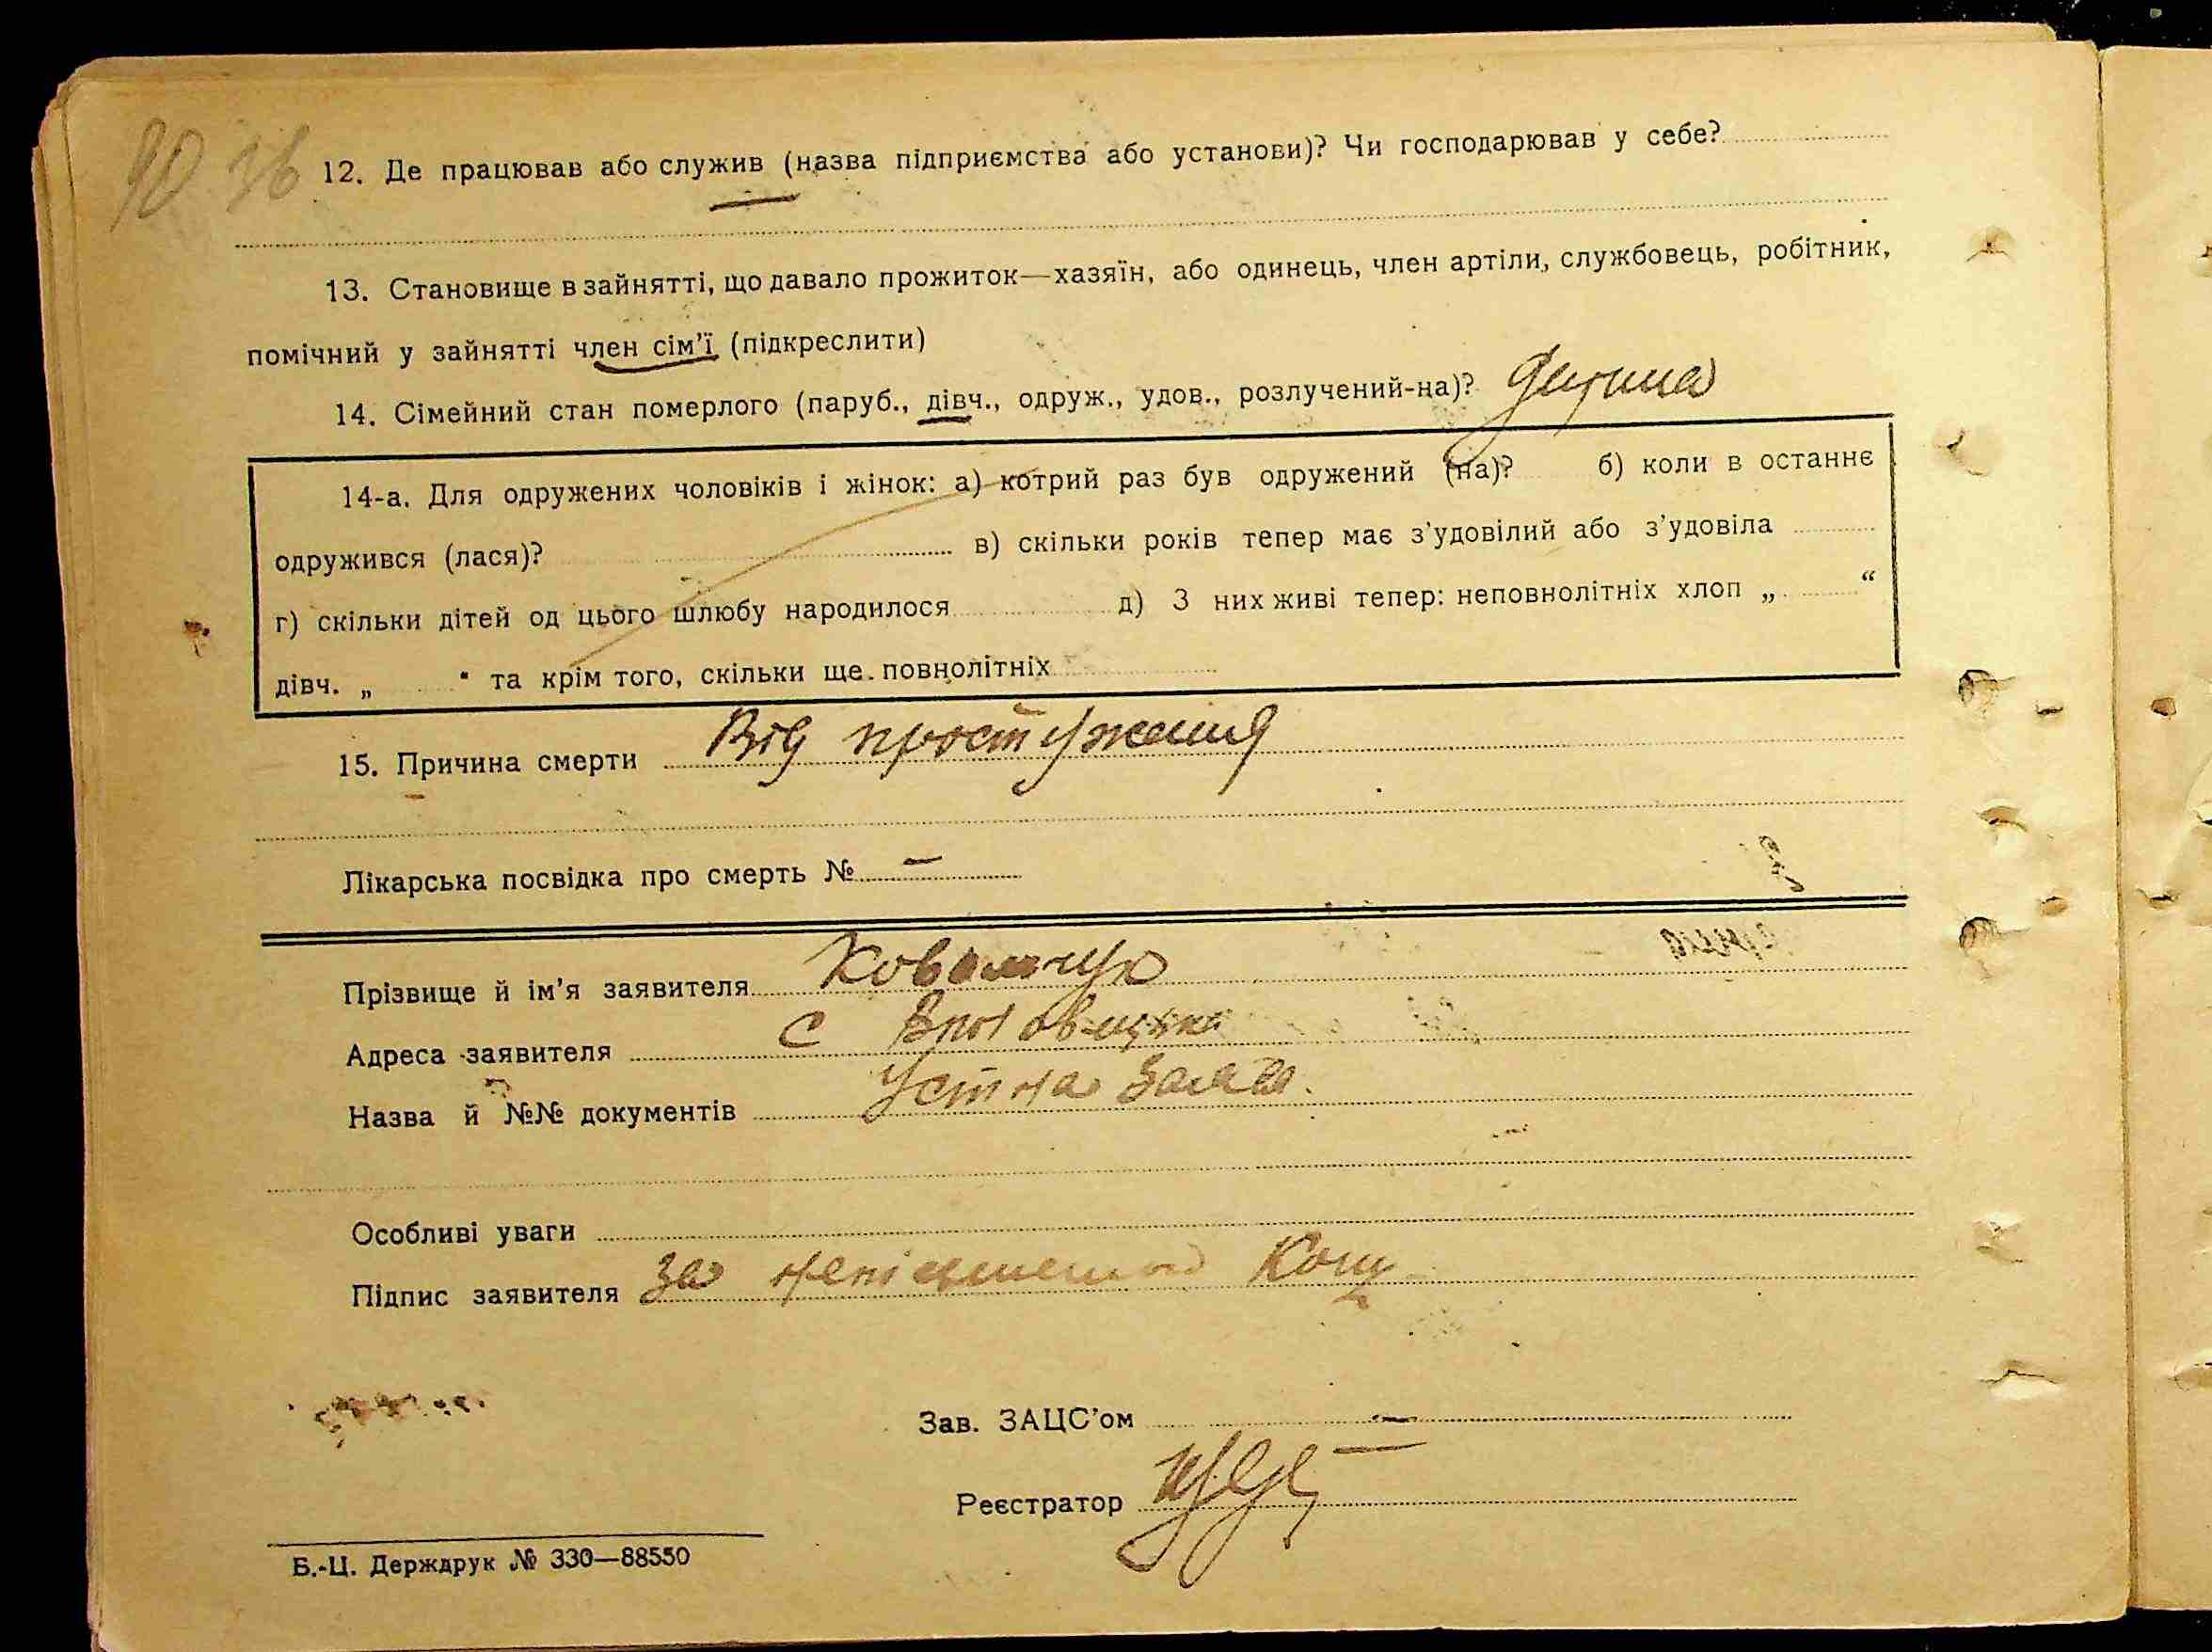 90 36
12. Де працював або служив (назва підприємства або установи)? Чи господарював у себе?
13. Становище в зайнятті, що давало прожиток—хазяїн, або одинець, член артіли, службовець, робітник,
помічний у зайнятті член сім'ї (підкреслити)
14. Сімейний стан померлого (паруб., дівч., одруж., удов., розлучений-на)? Дитина
14-а. Для одружених чоловіків і жінок: а) котрий раз був одружений (на)? б) коли в останнє
одружився (лася)? в) скільки років тепер має з'удовілий або з'удовіла
г) скільки дітей од цього шлюбу народилося д) З них живі тепер: неповнолітніх хлоп „ “
дівч. „ “ та крім того, скільки ще повнолітніх
15. Причина смерти Від простуження
Лікарська посвідка про смерть № —
Прізвище й ім'я заявителя Ковальчук
Адреса заявителя с
Назва й №№ документів Устна заява.
Особливі уваги
Підпис заявителя за
Зав. ЗАЦС'ом —
Реєстратор
Б.-Ц. Держдрук № 330—88550